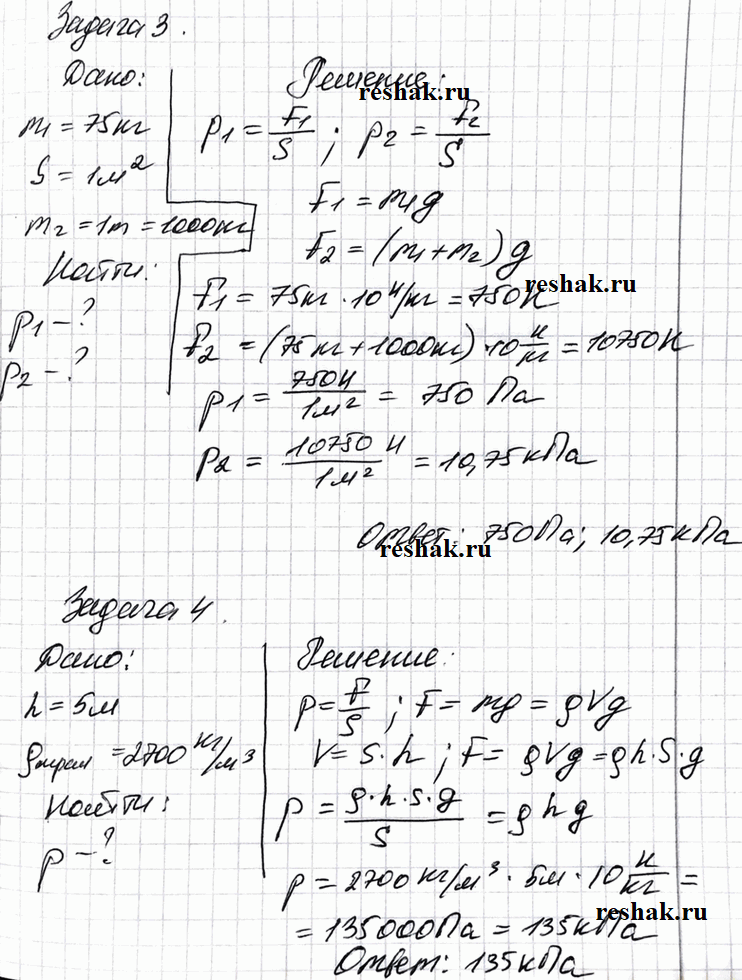 Задача 3.
Дано:
m₁ = 75кг
S = 1м²
m₂ = 1т = 1000кг
Найти:
p₁ - ?
p₂ - ?
Решение:
reshak.ru
p₁ = F₁/S ; p₂ = F₂/S
F₁ = m₁g
F₂ = (m₁+m₂)g
reshak.ru
F₁ = 75кг · 10 Н/кг = 750Н
F₂ = (75кг+1000кг)·10 Н/кг = 10750Н
p₁ = 750Н/1м² = 750 Па
p₂ = 10750 Н/1м² = 10,75кПа
Ответ: 750Па; 10,75кПа
reshak.ru
Задача 4.
Дано:
h = 5м
ρмрам = 2700 кг/м³
Найти:
p - ?
Решение:
p = F/S ; F = mg = ρVg
V = S·h ; F = ρVg = ρh·S·g
p = ρ·h·S·g/S = ρhg
p = 2700 кг/м³ · 5м · 10 Н/кг =
reshak.ru
= 135000Па = 135кПа
Ответ: 135кПа